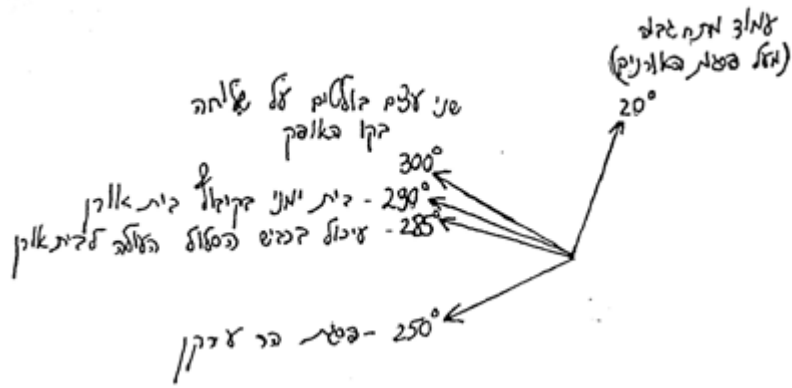 עמוד מתח גבוה
(מעל פסגת האורנים)
20°
שני עצים בולטים על שלוחה
בקו האופק
300°
290° - בית ימני בקיבוץ בית אורן
285° - עיכול בכביש הסלול העולה לבית אורן
250° - פסגת הר ערקן